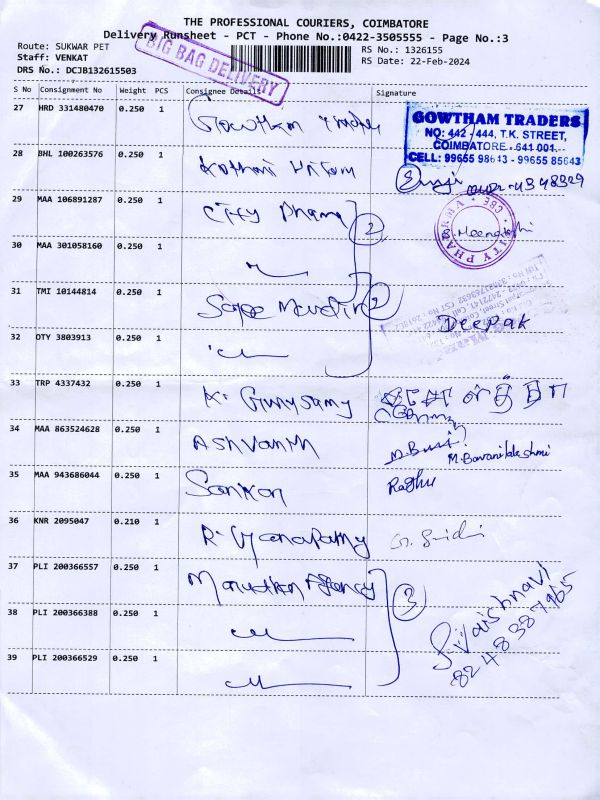 THE PROFESSIONAL COURIERS, COIMBATORE
Delivery Runsheet - PCT - Phone No.:0422-3505555 - Page No.:3
Route: SUKWAR PET
Staff: VENKAT
DRS No.: DCJB132615503
BIG BAG DELIVERY
RS No.: 1326155
RS Date: 22-Feb-2024
S No Consignment No Weight PCS Consignee Details Signature
27 HRD 331480470 0.250 1 Gowtham Trader
GOWTHAM TRADERS
NO: 442 - 444, T.K. STREET,
COIMBATORE - 641 001.
CELL: 99655 98643 - 99655 85643
28 BHL 100263576 0.250 1 Kothari
29 MAA 106891287 0.250 1 City Pharma 2
CITY PHARMA CBE
30 MAA 301058160 0.250 1
31 TMI 10144814 0.250 1 2 Deepak
32 OTY 3803913 0.250 1
33 TRP 4337432 0.250 1 K. Gurusamy
34 MAA 863524628 0.250 1 ASHVANTH M.Bavanilakshmi
35 MAA 943686044 0.250 1 Sankar Raghu
36 KNR 2095047 0.210 1
37 PLI 200366557 0.250 1 Agency 3
38 PLI 200366388 0.250 1
39 PLI 200366529 0.250 1
Vaishnavi
8248387965